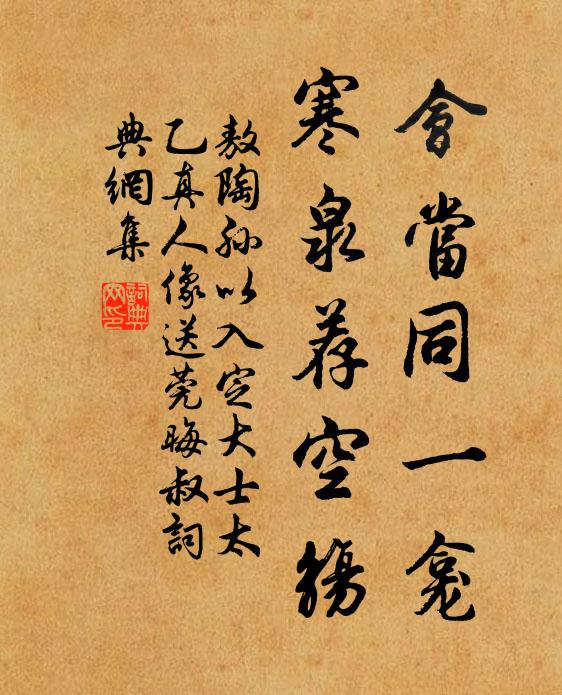 會當同一龕
寒泉荐空觴
敖陶孫以入定大士太
乙真人像送莞晦叔詞
典網集
詞典
网印